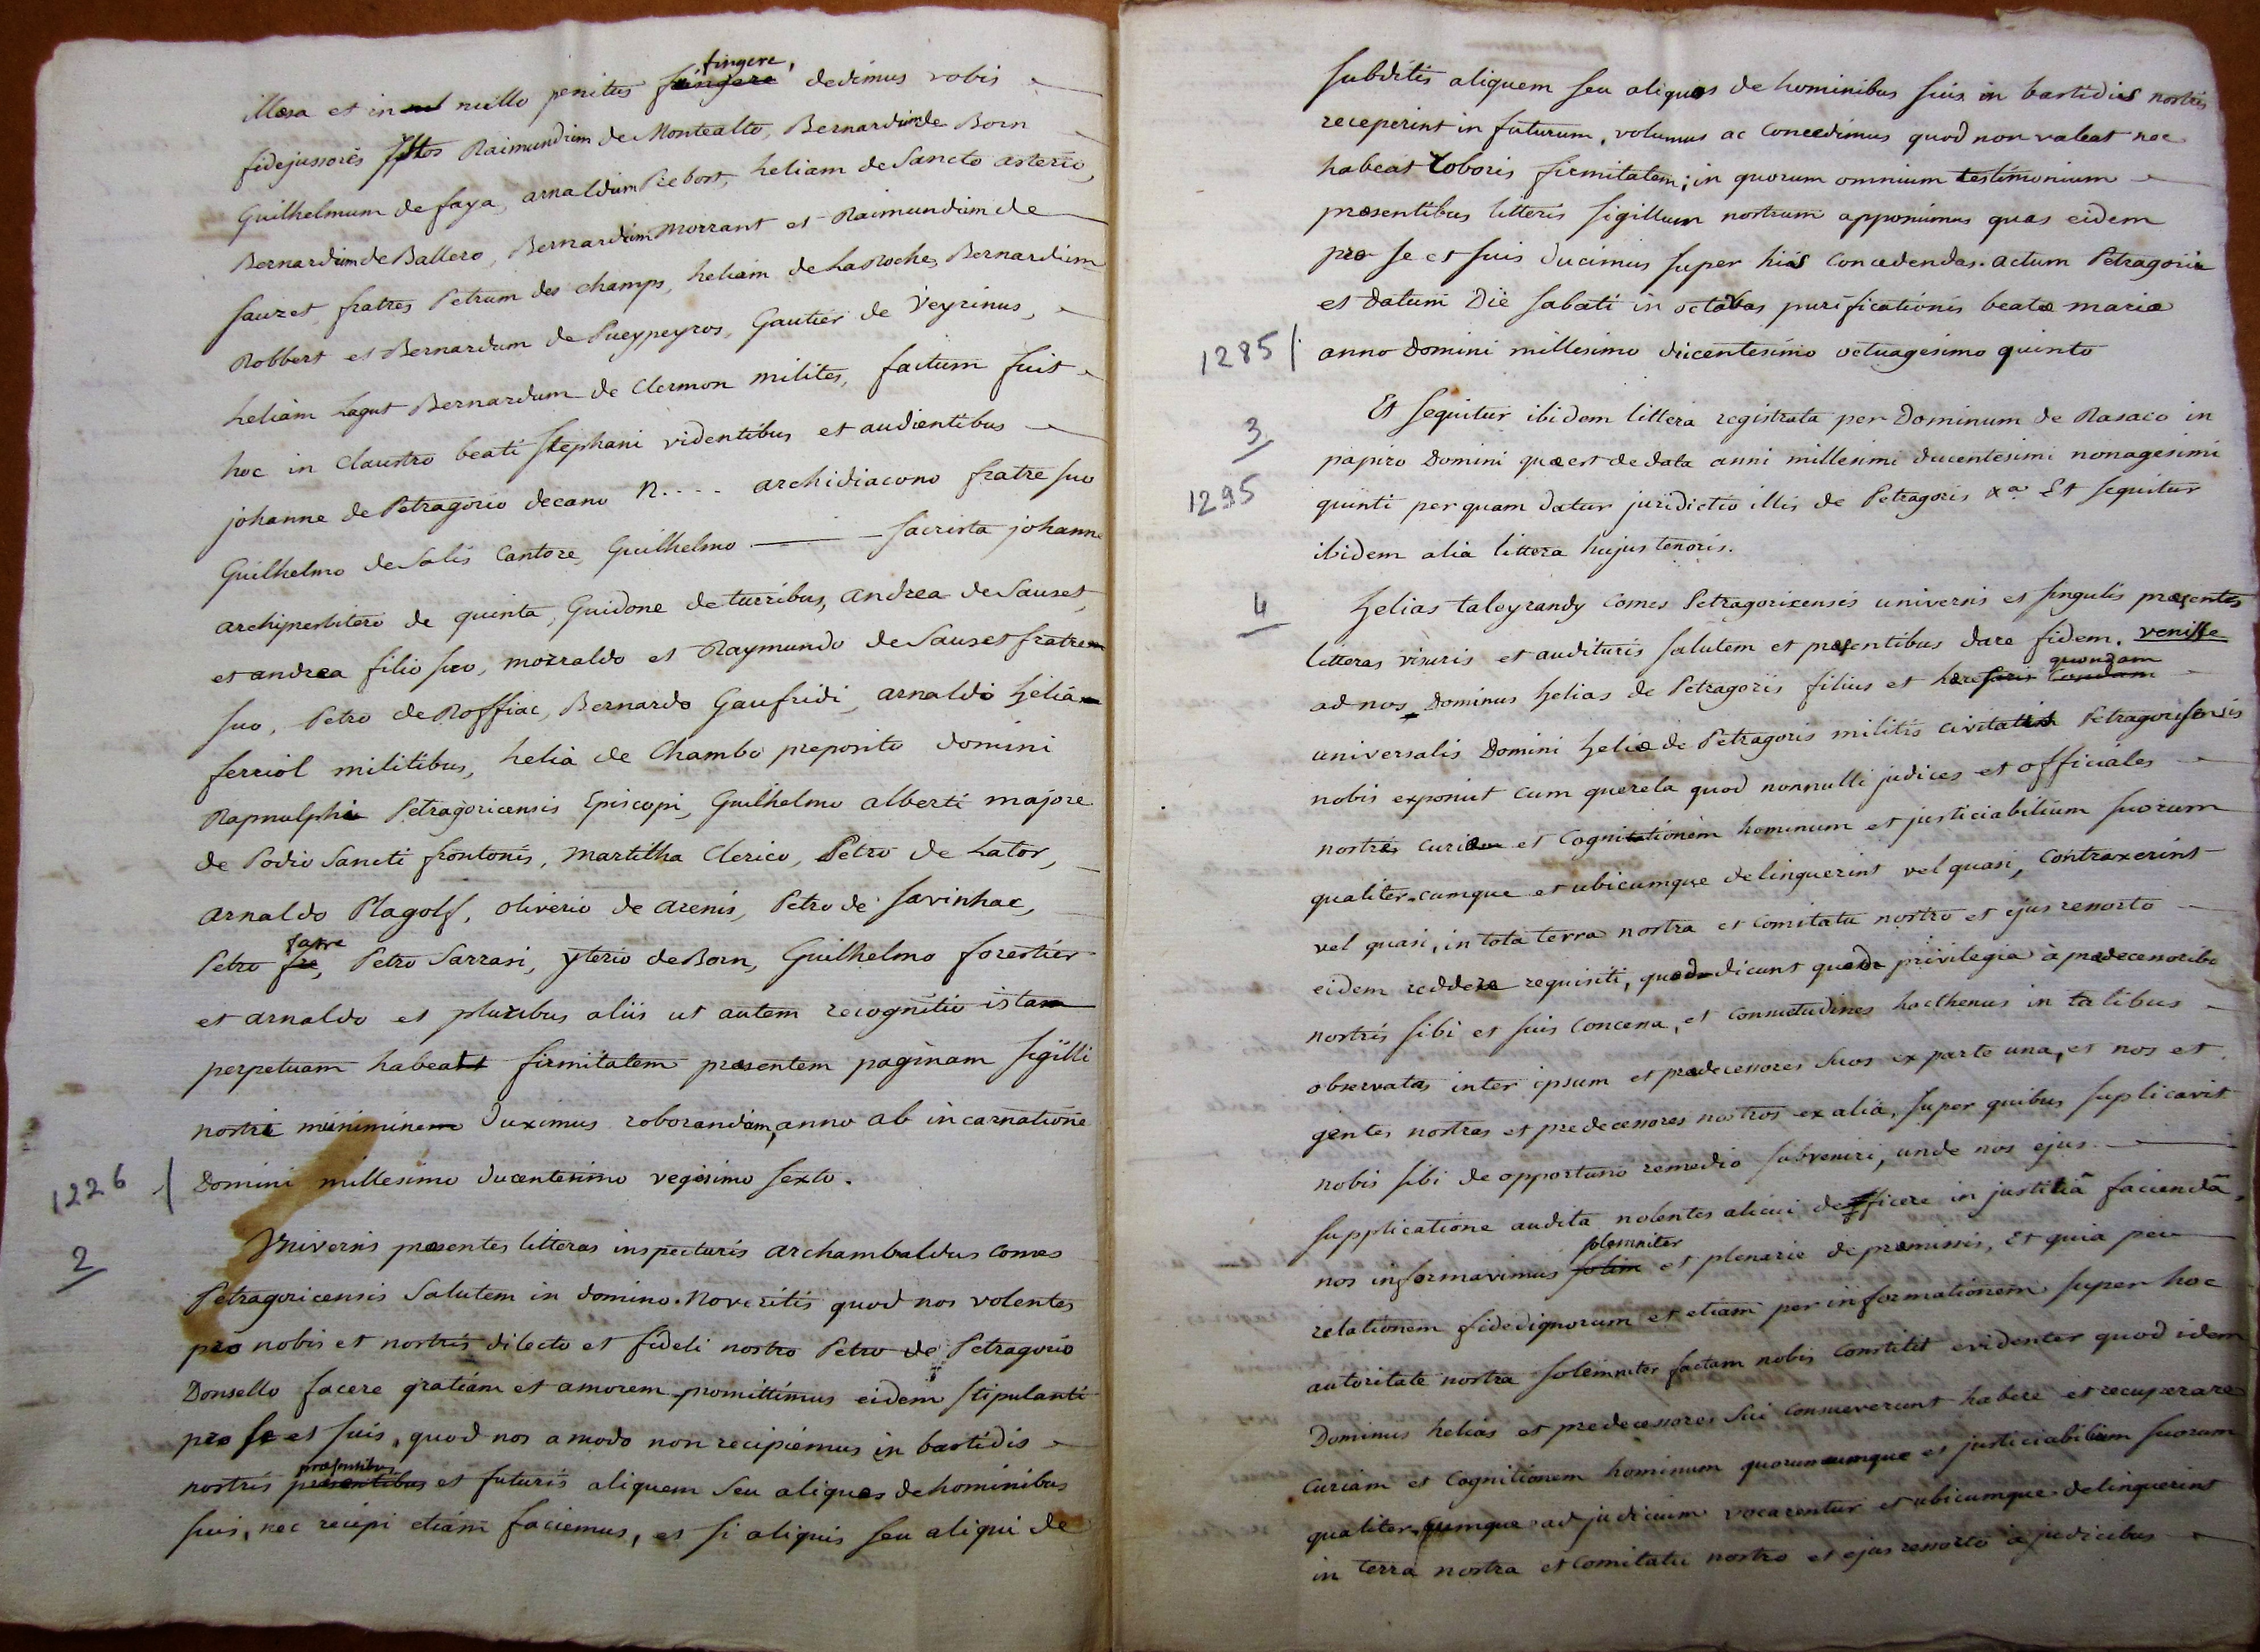 illæsa et in nullo penitus fingere, dedimus vobis
fidejussores istos Raimundum de Montealto, Bernardum de Born
Guilhelmum de faya, arnaldum Prebost, heliam de Sancto asterio,
Bernardum de Ballero, Bernardum Morrant et Raimundum de
Sauzet, fratres Petrum des champs, heliam de La Roche, Bernardum
Robbert et Bernardum de Pueypeyros, Gautier de Veyrinus,
heliam Lagut Bernardum de Clermon milites, factum fuit
hoc in Claustro beati Stephani videntibus et audientibus
johanne de Petragorio decano N.... archidiacono fratre suo
Guilhelmo de Salis Cantore, Guilhelmo ——— sacrista johanne
archipresbitero de quinta, Guidone de turribus, andrea de Sauset,
et andrea filio suo, morraldo et Raymundo de Sauset fratre
suo, Petro de Roffiac, Bernardo Gaufridi, arnaldo helia
ferriol militibus, helia de Chambo preposito domini
Rapnulphi Petragoricensis Episcopi, Guilhelmo alberti majore
de Podio Sancti frontonis, Martilha Clerico, Petro de Lator,
arnaldo Plagolf, oliverio de arenis, Petro de Savinhac,
Petro fabre, Petro Sarrasi, yterio de Born, Guilhelmo forestier
et arnaldo et pluribus aliis ut autem recognitio ista
perpetuam habeat firmitatem præsentem paginam sigilli
nostri munimine duximus roborandam, anno ab incarnatione
1226 Domini millesimo ducentesimo vegesimo sexto.
2 Universis præsentes litteras inspecturis archambaldus comes
Petragoricensis Salutem in domino. Noveritis quod nos volentes
pro nobis et nostris dilecto et fideli nostro Petro de Petragorio
Donsello facere gratiam et amorem promittimus eidem stipulanti
pro se et suis, quod nos a modo non recipiemus in bastidis
nostris præsentibus et futuris aliquem seu aliquos de hominibus
suis, nec recipi etiam faciemus, et si aliquis seu aliqui de
subditis aliquem seu aliquos de hominibus suis in bastidis nostris
receperint in futurum, volumus ac concedimus quod non valeat nec
habeat roboris firmitatem; in quorum omnium testimonium
præsentibus litteris sigillum nostrum apponimus quas eidem
pro se et suis ducimus super hiis concedendas. actum Petragoris
et datum Die Sabati in octabas purificationis beatæ mariæ
1285 anno Domini millesimo ducentesimo octuagesimo quinto
3 Et sequitur ibidem littera registrata per Dominum de Rasaco in
papiro Domini quæ est de data anni millesimi ducentesimi nonagesimi
1295 quinti per quam datur juridictio illis de Petragoris xa Et sequitur
ibidem alia littera hujus tenoris.
4 Helias taleyrandy comes Petragoricensis universis et singulis præsentes
litteras visuris et audituris salutem et præsentibus dare fidem. venisse
ad nos Dominus helias de Petragoriis filius et hæres quondam
universalis Domini heliæ de Petragoris militis civitatis Petragorisensis
nobis exponit cum querela quod nonnulli judices et officiales
nostri curiam et cognitionem hominum et justiciabilium suorum
qualiter-cumque et ubicumque delinquerint vel quasi, contraxerint
vel quasi, in tota terra nostra et comitatu nostro et ejus ressorto
eidem reddere requisiti, quædam privilegia à prædecessoribus
nostris sibi et suis concessa, et consuetudines hacthenus in talibus
observatas inter ipsum et prædecessores suos ex parte una, et nos et
gentes nostras et predecessores nostros ex alia, super quibus suplicavit
nobis sibi de opportuno remedio subveniri, unde nos ejus
supplicatione audita nolentes alicui deficere in justitiâ faciendâ,
nos informavimus solemniter et plenarie de præmissis, et quia per
relationem fide dignorum et etiam per informationem super hoc
autoritate nostra solemniter factam nobis constitit evidenter quod idem
Dominus helias et predecessores sui consueverunt habere et recuperare
curiam et cognitionem hominum quorumcumque et justiciabilium suorum
qualiter-cumque ad judicium vocarentur et ubicumque delinquerint
in terra nostra et comitatu nostro et ejus ressorto a judicibus